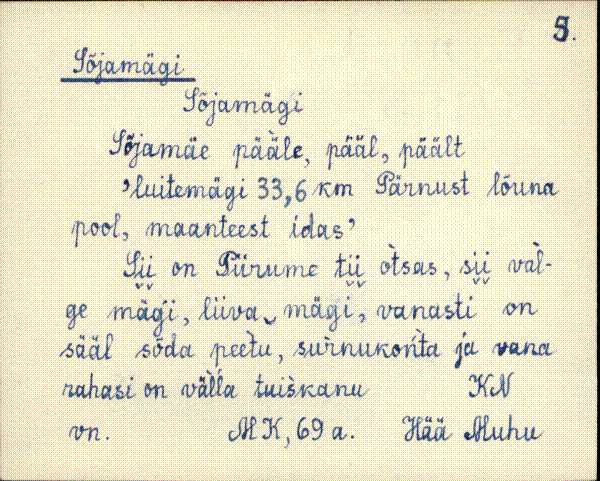 S.
Sõjamägi
Sõjamägi
Sõjamäe pääle, pääl, päält
'luitemägi 33,6 km Pärnust lõuna
pool, maanteest idas'
Sii on Piirume tii òtsas, sii val-
ge mägi, liiva mägi, vanasti on
sääl sõda peetu, surnukoǹta ja vana
rahasi on välla tuiskanu KN
vn. MK, 69 a. Hää Muhu